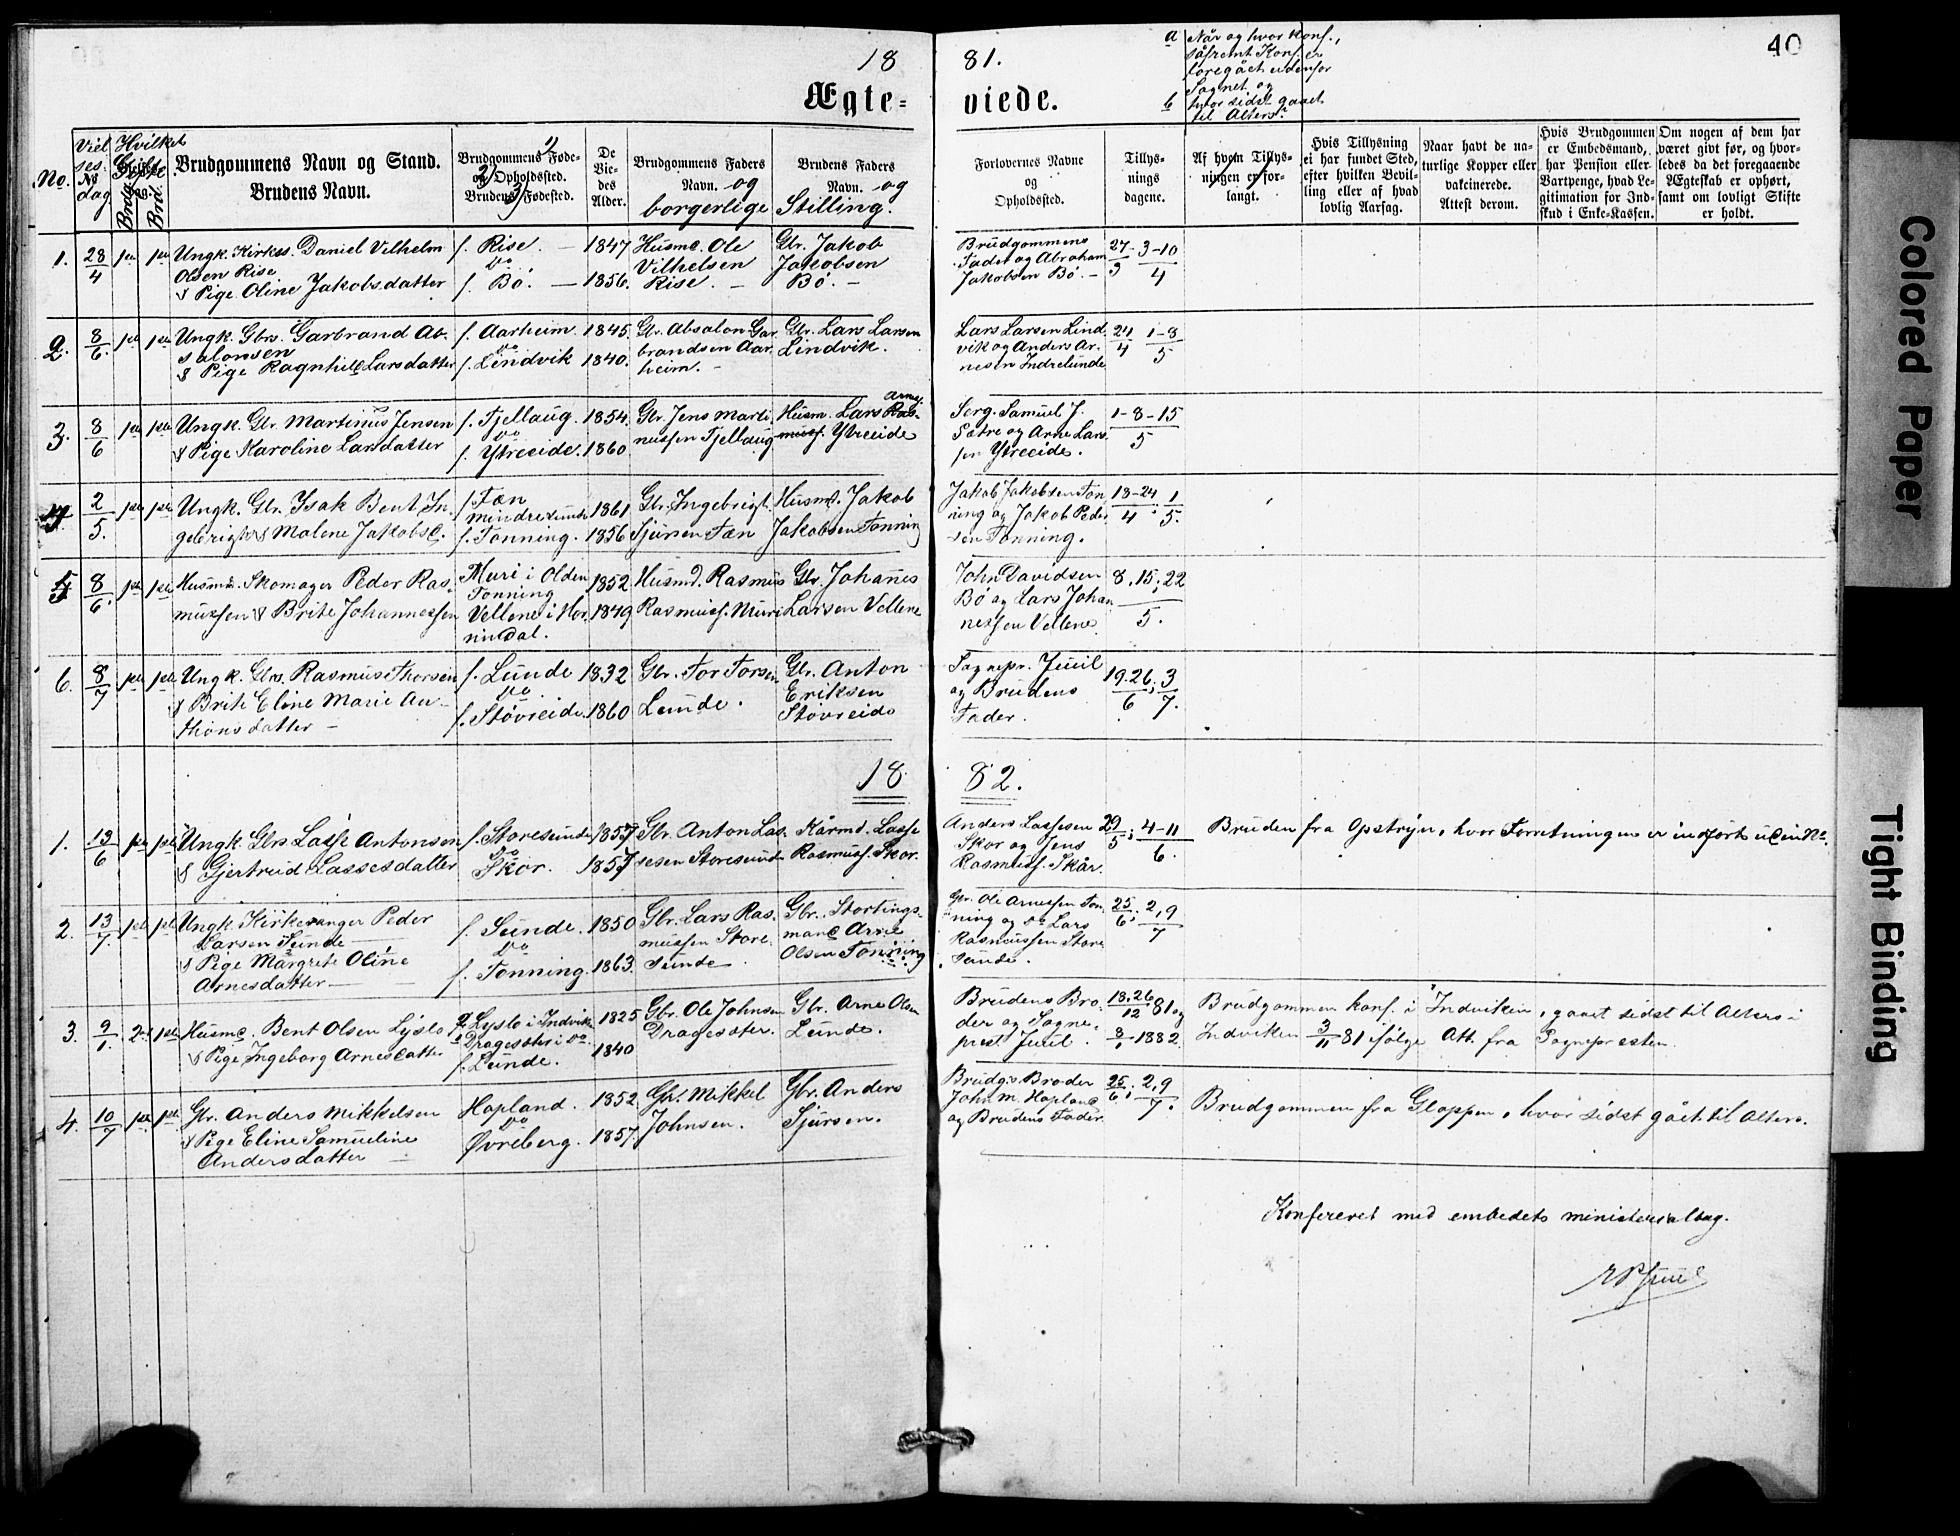 18 81.
40
Ægte= viede.
a Når og hvor Konf.,
såfremt Konf. er
foregået udenfor
Sognet og
b hvor sidst gaaet
til Alters.
No.
Viel
ses-
dag
Hvilket
Gifte
Brudgommens Navn og Stand.
Brudens Navn.
Brudgommens Føde=
og Opholdssted.
Brudens Fødested.
1) 2) 3)
De
Vie=
des
Alder.
Brudgommens Faders
Navn. og
borgerlige
Brudens Faders
Navn. og
Stilling.
Forlovernes Navne
og
Opholdssted.
Tillys=
nings
dagene.
Af hvem Tillys=
ningen er for=
langt.
Hvis Tillysning
ei har fundet Sted,
efter hvilken Bevil=
ling eller af hvad
lovlig Aarsag.
Naar havt de na=
turlige Kopper eller
vakcinerede.
Attest derom.
Hvis Brudgommen
er Embedsmand,
har Pension eller
Vartpenge, hvad Le=
gitimation for Ind=
skud i Enke=Kassen.
Om nogen af dem har
været givt før, og hvor=
ledes da det foregaaende
Ægteskab er ophørt,
samt om lovligt Skifte
er holdt.
1. 28/4 1ste 1ste Ungk. Kirkes. Daniel Vilhelm
Olsen Rise
& Pige Oline Jakobsdatter
f. Rise. — 1847
do
f. Bö. — 1856.
Husmd. Ole
Vilhelsen
Rise. —
Gbr. Jakob
Jakobsen
Bö. —
Brudgommens
Fader og Abraham
Jakobsen Bö. —
27/3 - 3-10/4
2. 8/6. 1ste 1ste Ungk. Gbrs. Garbrand Ab-
salonsen
& Pige Ragnhild Larsdatter
f. Aarheim. 1845.
do
f. Lindvik 1840.
Gbr. Absalon Gar
brandsen Aar
heim. -
Gbr. Lars Larsen
Lindvik.
Lars Larsen Lind
vik og Anders Ar-
nesen Indrelunde
24/4 1-8/5
3. 8/6 1ste 1ste Ungk. Gbr. Martinus Jensen
& Pige Karoline Larsdatter
f. Fjellaug. 1854.
do
f. Ytreeide. 1860
Gbr. Jens Marti
nussen Fjellaug
Husm. Lars Ras-
Arne
muss. Ytreeide
Serg. Samuel J.
Sætre og Arne Lars
sen Ytreeide.
1-8-15/5
4 2/5. 1ste 1ste Ungk. Gbr. Ysak Bent In-
gebrigts & Malene Jakobsd.
f. Tæn
mindresunde 1861
f. Tonning. 1856
Gbr. Ingebrigt
Sjursen Tæn
Husmd. Jakob
Jakobsen Tonning
Jakob Jakobsen Ton
ning og Jakob Peder
sen Tonning.
18-24/4; 1/5.
5 8/6. 1ste 1ste Husmd. Skomager Peder Ras-
mussen & Brite Johannessen
Muri i Olden 1852
Tonning
Vellene i Hor 1849
nindal.
Husmd. Rasmus
Rasmuss. Muri
Gbr. Johanes
Larsen Vellene
John Davidsen
Bö og Lars Johan
nessen Vellene
8, 15, 22/5.
6. 8/7 1ste 1ste Ungk. Gbrs. Rasmus Thorsen
& Brite Eline Marie An-
thons datter —
f. Lunde 1832
do
f. Stövreide. 1860
Gbr. Tor Torsen
Lunde.
Gbr. Anton
Eriksen
Stövreide
Sognepr. Juul
og Brudens
Fader.
19.26/6; 3/7.
18 82.
1. 13/6 1ste 1ste Ungk. Gbrs Lasse Antonsen
& Gjertrud Lassesdatter
f. Storesunde 1857
do
Skor. 1857
Gbr. Anton Las-
sesen Storesunde
Kårmd. Lasse
Rasmuss. Skor.
Anders Lassesen
Skor og Jens
Rasmuss. Skår.
29/5; 4-11/6.
Bruden fra Opstryn, hvor Forretningen er indfört uden No.
2. 13/7 1ste 1ste Ungk. Kirkesanger Peder
Larsen Sunde —
& Pige Margrete Oline
Arnesdatter —
f. Sunde. 1850
do
f. Tonning. 1863.
Gbr. Lars Ras-
mussen Store
sunde.
Gbr. Stortings-
mand Arne
Olsen Tonning
Gbr. Ole Arnessen Ton-
ning og do Lars
Rasmussen Store
sunde.
25/6; 2,9/7
3. 9/1. 2det 1ste Husmd. Bent Olsen Lyslo
& Pige Ingeborg Arnesdatter
Lyslo i Indviken 1825
Dragesæter i do.
f. Lunde. 1840
Gbr. Ole Johnsen
Dragesæter.
Gbr. Arne Olsen
Lunde.
Brudens Bro-
der og Sogne-
præst Juul.
18.26/12 81 og
8/1 - 1882.
Brudgommen konf. i Indviken, gaaet sidst til Alters i
Indviken 3/11 81 ifølge Att. fra Sognepresten.
4. 10/7 1ste 1ste Gbr. Anders Mikkelsen
& Pige Eline Samueline
Andersdatter —
Hopland. 1852
do
Øvreberg. 1857.
Gbr. Mikkel
Johnsen.
Gbr. Anders
Sjursen.
Brudg.s Broder
John M. Hopland
og Brudens Fader.
25/6; 2,9/7.
Brudgommen fra Gloppen, hvor sidst gået til Alters.
Konfereret med embedets ministerialbog.
Juul
Colored Paper
Tight Binding